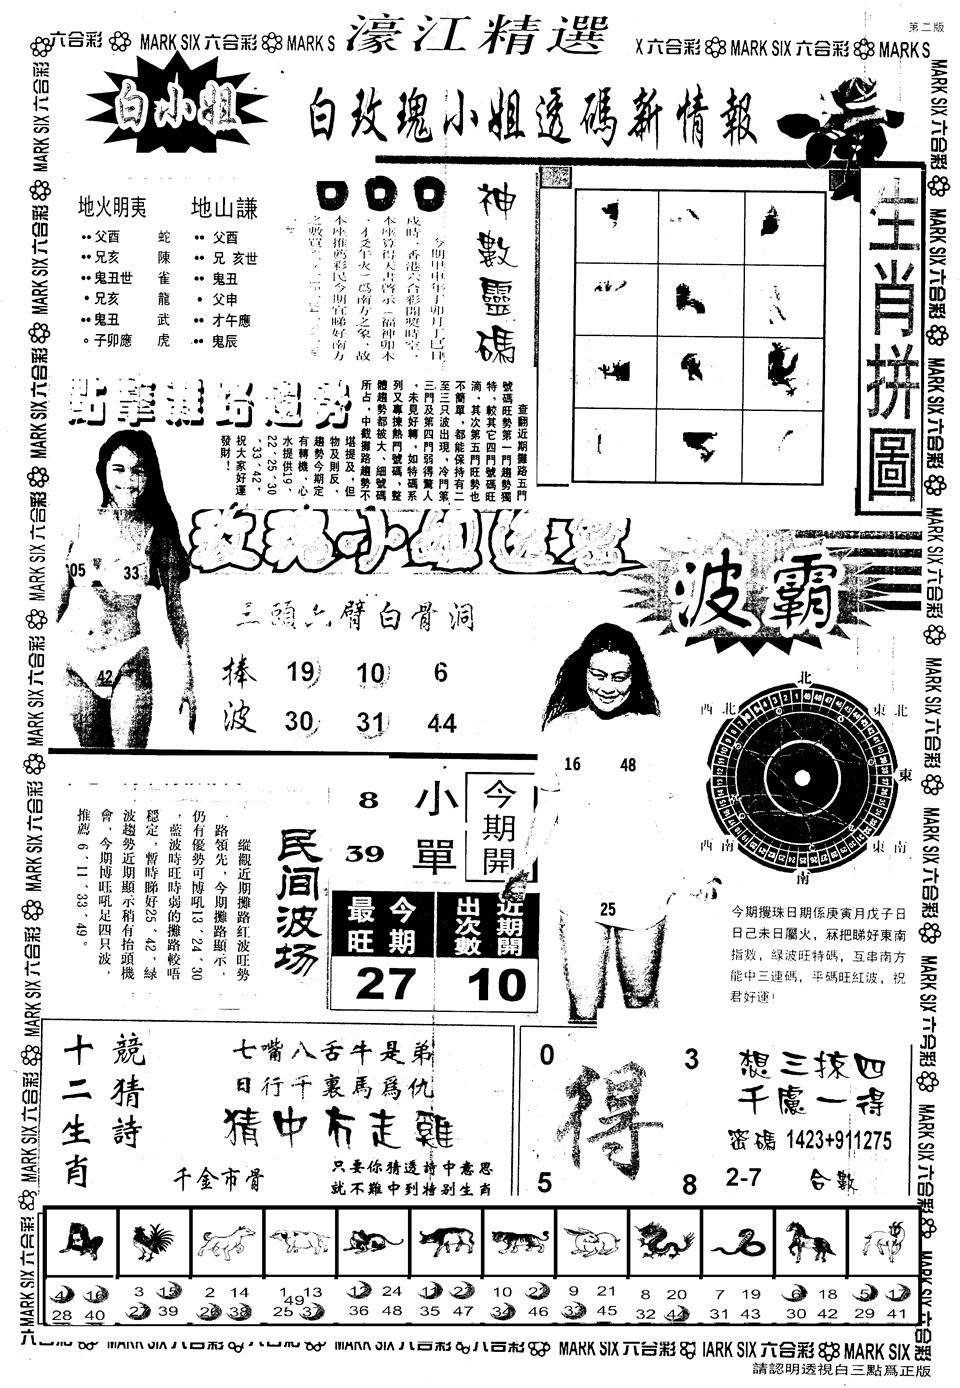 第二版
濠江精選
六合彩 MARK SIX 六合彩 MARK S
X 六合彩 MARK SIX 六合彩 MARK S
白小姐
白玫瑰小姐透碼新情報
地火明夷
父酉 蛇
兄亥 陳
鬼丑世 雀
兄亥 龍
鬼丑 武
子卯應 虎
地山謙
父酉
兄亥世
鬼丑
父申
才午應
鬼辰
神數靈碼
今期甲申年丁卯月丁巳日
戌時，香港六合彩開獎時空，
本座算得天書啓示（福神卯木
，才爻午火）爲南方之象，故
本座推薦彩民今期宜睇好南方
生肖拼圖
點擊攤路趨勢
查翻近期攤路五門
號碼旺勢第一門趨勢獨
特、較其它四門號碼旺
滴、其次第五門旺勢也
不簡單，都能保持有二
至三只波出現，冷門第
三門及第四門弱得驚人
，未見好轉，如特碼系
列又專揀熱門號碼，整
體趨勢都被大、細號碼
所占，中截攤路趨勢不
堪提及，但
物及則反，
趨勢今期定
有轉機，心
水提供19、
22、25、30
、33、42，
祝大家好運
發財！
05 33
42
玫瑰小姐透密
三頭六臂白骨洞
捧波
19 10 6
30 31 44
波霸
16 48
25
北
西北 東北
東
西南 東南
南
縱觀近期攤路紅波旺勢
路領先，今期攤路顯示，
仍有優勢可博吼13、24、30
，藍波時旺時弱的攤路較唔
穩定，暫時睇好25、42，绿
波趨勢近期顯示稍有抬頭機
會，今期博旺吼足四只波，
推薦6、11、33、49。
民间波场
8 小
39 單
今期開
最旺 今期
27
出次數 近期開
10
今期攪珠日期係庚寅月戊子日
日己未日屬火，冧把睇好東南
指數，绿波旺特碼，互串南方
能中三連碼，平碼旺紅波，祝
君好運！
十二生肖
競猜詩
七嘴八舌牛是弟
日行千裏馬爲仇
猜中冇走雞
千金市骨
只要你猜透詩中意思
就不難中到特别生肖
0 3
得
5 8
想三掠四
千慮一得
密碼 1423+911275
2-7 合數
4 16 3 15 2 14 1 13 12 24 11 23 10 22 9 21 8 20 7 19 6 18 5 17
49
28 40 27 39 26 38 25 37 36 48 35 47 34 46 33 45 32 44 31 43 30 42 29 41
MARK SIX 六合彩 MARK SIX 六合彩 IARK SIX 六合彩 MARK SIX
請認明透視白三點爲正版